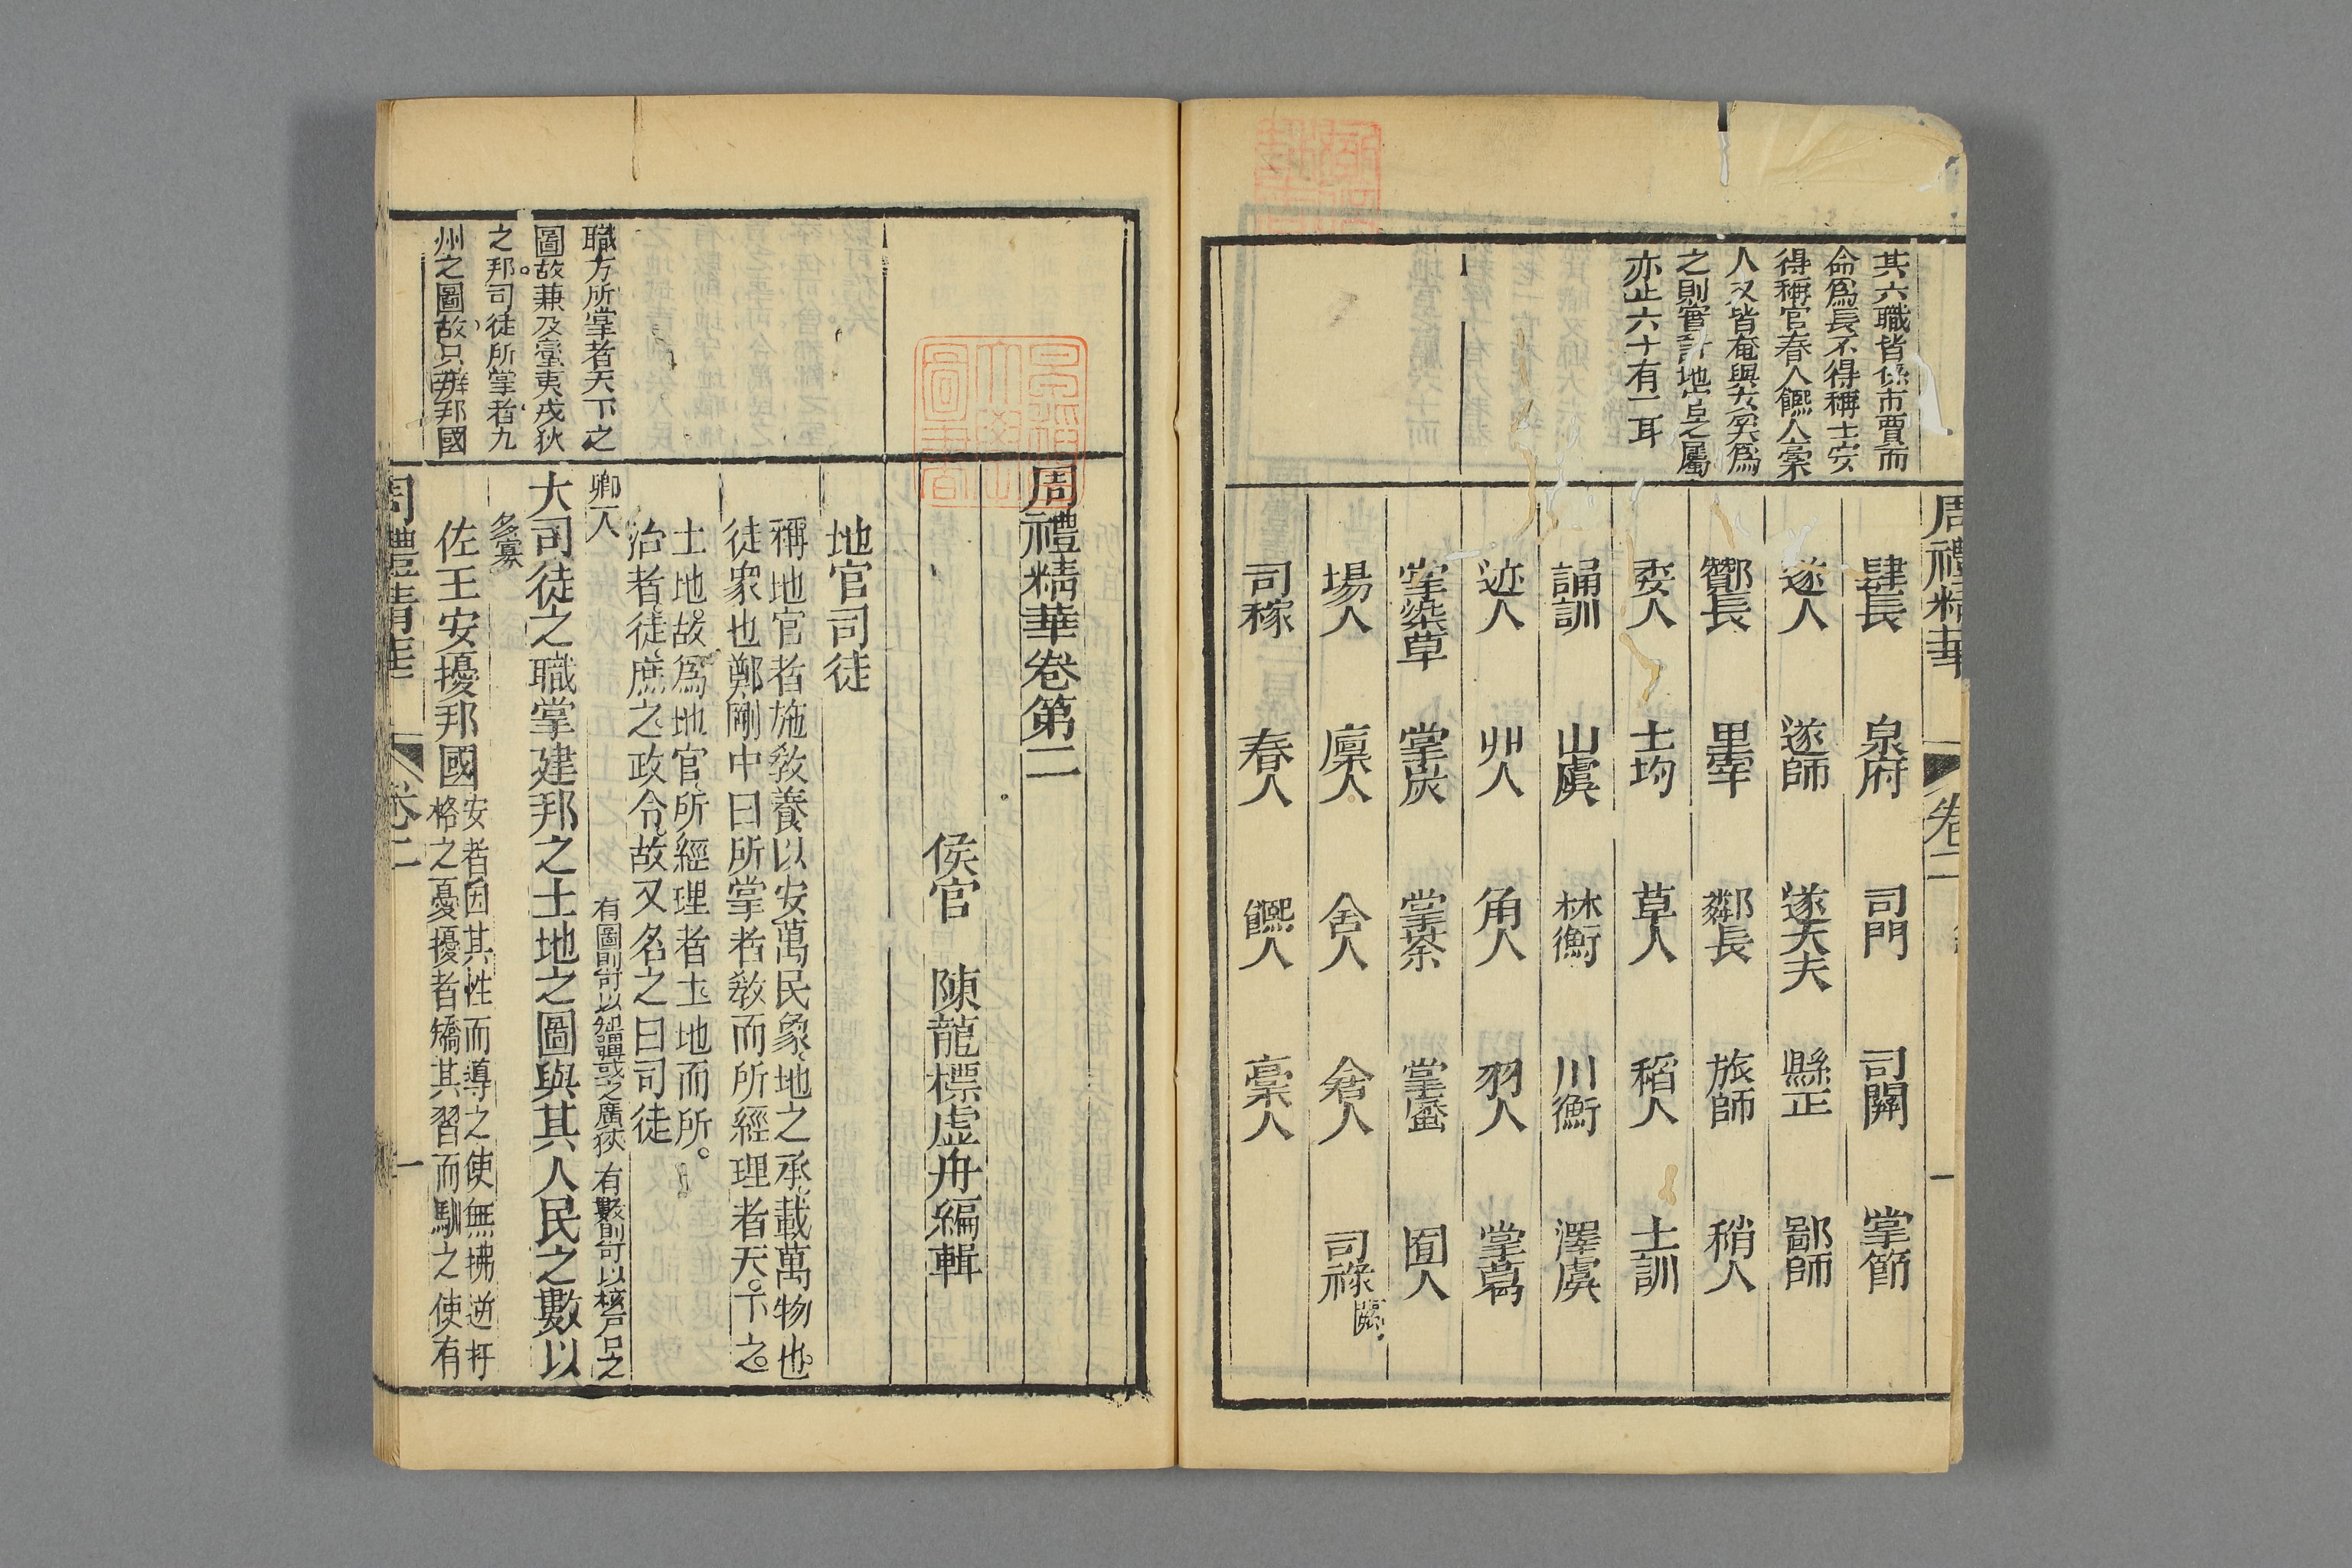 周禮精華
卷二
一
其六職皆係市賈而
命爲長不得稱士安
得稱官舂人饎人稾
人又皆奄與女奚爲
之則實計地官之屬
亦止六十有一耳
肆長 泉府 司門 司關 掌節
遂人 遂師 遂大夫 縣正 鄙師
酇長 里宰 鄰長 旅師 稍人
委人 土均 草人 稻人 土訓
誦訓 山虞 林衡 川衡 澤虞
迹人 丱人 角人 羽人 掌葛
掌染草 掌炭 掌荼 掌蜃 囿人
場人 廩人 舍人 倉人 司祿闕
司稼 舂人 饎人 稾人
周禮精華卷第二
侯官 陳龍標虚舟編輯
地官司徒
稱地官者施敎養以安萬民象地之承載萬物也
徒衆也鄭剛中曰所掌者敎而所經理者天下之
土地故爲地官所經理者土地而所
治者徒庶之政令故又名之曰司徒
職方所掌者天下之
圖故兼及蠻夷戎狄
之邦司徒所掌者九
州之圖故只辨邦國
卿一人
有圖則可以知疆域之廣狹 有數則可以核戶口之
大司徒之職掌建邦之土地之圖與其人民之數以
多寡
佐王安擾邦國
安者因其性而導之使無拂逆扞
格之憂擾者矯其習而馴之使有
周禮精華
卷二
一